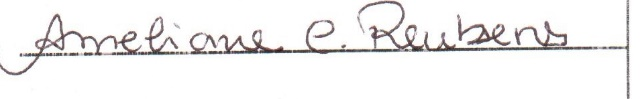 Ameliane C. Reubens